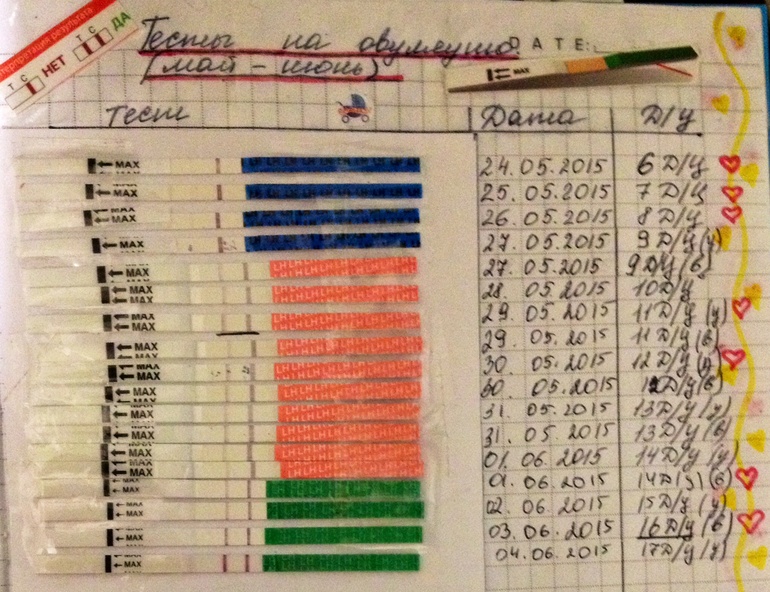 интерпретация результата
Т С НЕТ
Т С ДА
Тесты на овуляцию DATE:
(май - июнь)
MAX
Тест Дата Д/Ц
MAX 24.05.2015 6 Д/Ц
MAX 25.05.2015 7 Д/Ц
MAX 26.05.2015 8 Д/Ц
MAX 27.05.2015 9 Д/Ц (у)
MAX 27.05.2015 9 Д/Ц (в)
MAX 28.05.2015 10 Д/Ц
MAX 29.05.2015 11 Д/Ц (у)
MAX 29.05.2015 11 Д/Ц (в)
MAX 30.05.2015 12 Д/Ц (у)
MAX 30.05.2015 12 Д/Ц (в)
MAX 31.05.2015 13 Д/Ц (у)
MAX 31.05.2015 13 Д/Ц (в)
MAX 01.06.2015 14 Д/Ц (у)
MAX 01.06.2015 14 Д/Ц (в)
MAX 02.06.2015 15 Д/Ц (у)
MAX 03.06.2015 16 Д/Ц (в)
MAX 04.06.2015 17 Д/Ц (у)